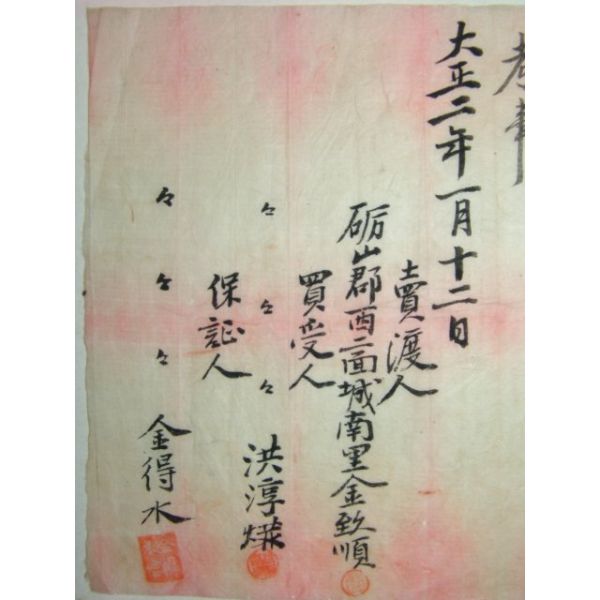 考
大正二年一月十二日
賣渡人
砺山郡西二面城南里金致順
買受人
々々々洪淳
保証人
々々々金得水